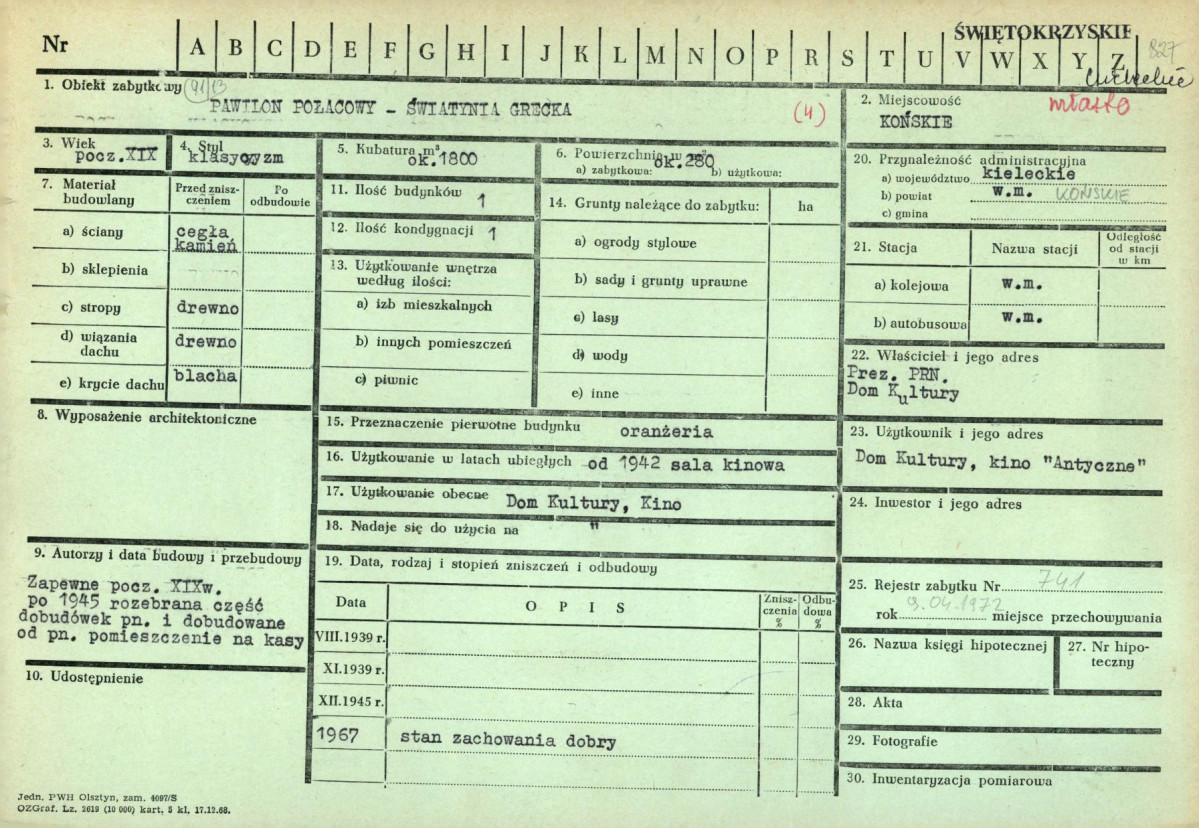 Nr A B C D E F G H I J K L M N O P R S T U V W X Y Z
ŚWIĘTOKRZYSKIE
827
1. Obiekt zabytkowy 91/13
PAWILON POŁACOWY – ŚWIATYNIA GRECKA (4)
2. Miejscowość miasto
KOŃSKIE
3. Wiek
pocz.XIX
4. Styl
klasycyzm
5. Kubatura m³
ok.1800
6. Powierzchnia w m²
ok.280
a) zabytkowa: b) użytkowa:
7. Materiał budowlany
Przed zniszczeniem
Po odbudowie
a) ściany cegła
kamień
b) sklepienia
c) stropy drewno
d) wiązania dachu drewno
e) krycie dachu blacha
8. Wyposażenie architektoniczne
9. Autorzy i data budowy i przebudowy
Zapewne pocz. XIXw.
po 1945 rozebrana część
dobudówek pn. i dobudowane
od pn. pomieszczenie na kasy
10. Udostępnienie
11. Ilość budynków 1
12. Ilość kondygnacji 1
13. Użytkowanie wnętrza
według ilości:
a) izb mieszkalnych
b) innych pomieszczeń
c) piwnic
14. Grunty należące do zabytku: ha
a) ogrody stylowe
b) sady i grunty uprawne
c) lasy
d) wody
e) inne
15. Przeznaczenie pierwotne budynku oranżeria
16. Użytkowanie w latach ubiegłych od 1942 sala kinowa
17. Użytkowanie obecne Dom Kultury, Kino
18. Nadaje się do użycia na "
19. Data, rodzaj i stopień zniszczeń i odbudowy
Data O P I S Zniszczenia % Odbudowa %
VIII.1939 r.
XI.1939 r.
XII.1945 r.
1967 stan zachowania dobry
20. Przynależność administracyjna
a) województwo kieleckie
b) powiat w.m. KOŃSKIE
c) gmina
21. Stacja Nazwa stacji Odległość od stacji w km
a) kolejowa w.m.
b) autobusowa w.m.
22. Właściciel i jego adres
Prez. PRN.
Dom Kultury
23. Użytkownik i jego adres
Dom Kultury, kino "Antyczne"
24. Inwestor i jego adres
25. Rejestr zabytku Nr 741
rok 9.04.1972 miejsce przechowywania
26. Nazwa księgi hipotecznej
27. Nr hipoteczny
28. Akta
29. Fotografie
30. Inwentaryzacja pomiarowa
Jedn. PWH Olsztyn, zam. 4097/S
OZGraf. Lz. 2619 (10 000) kart. 5 kl. 17.12.68.